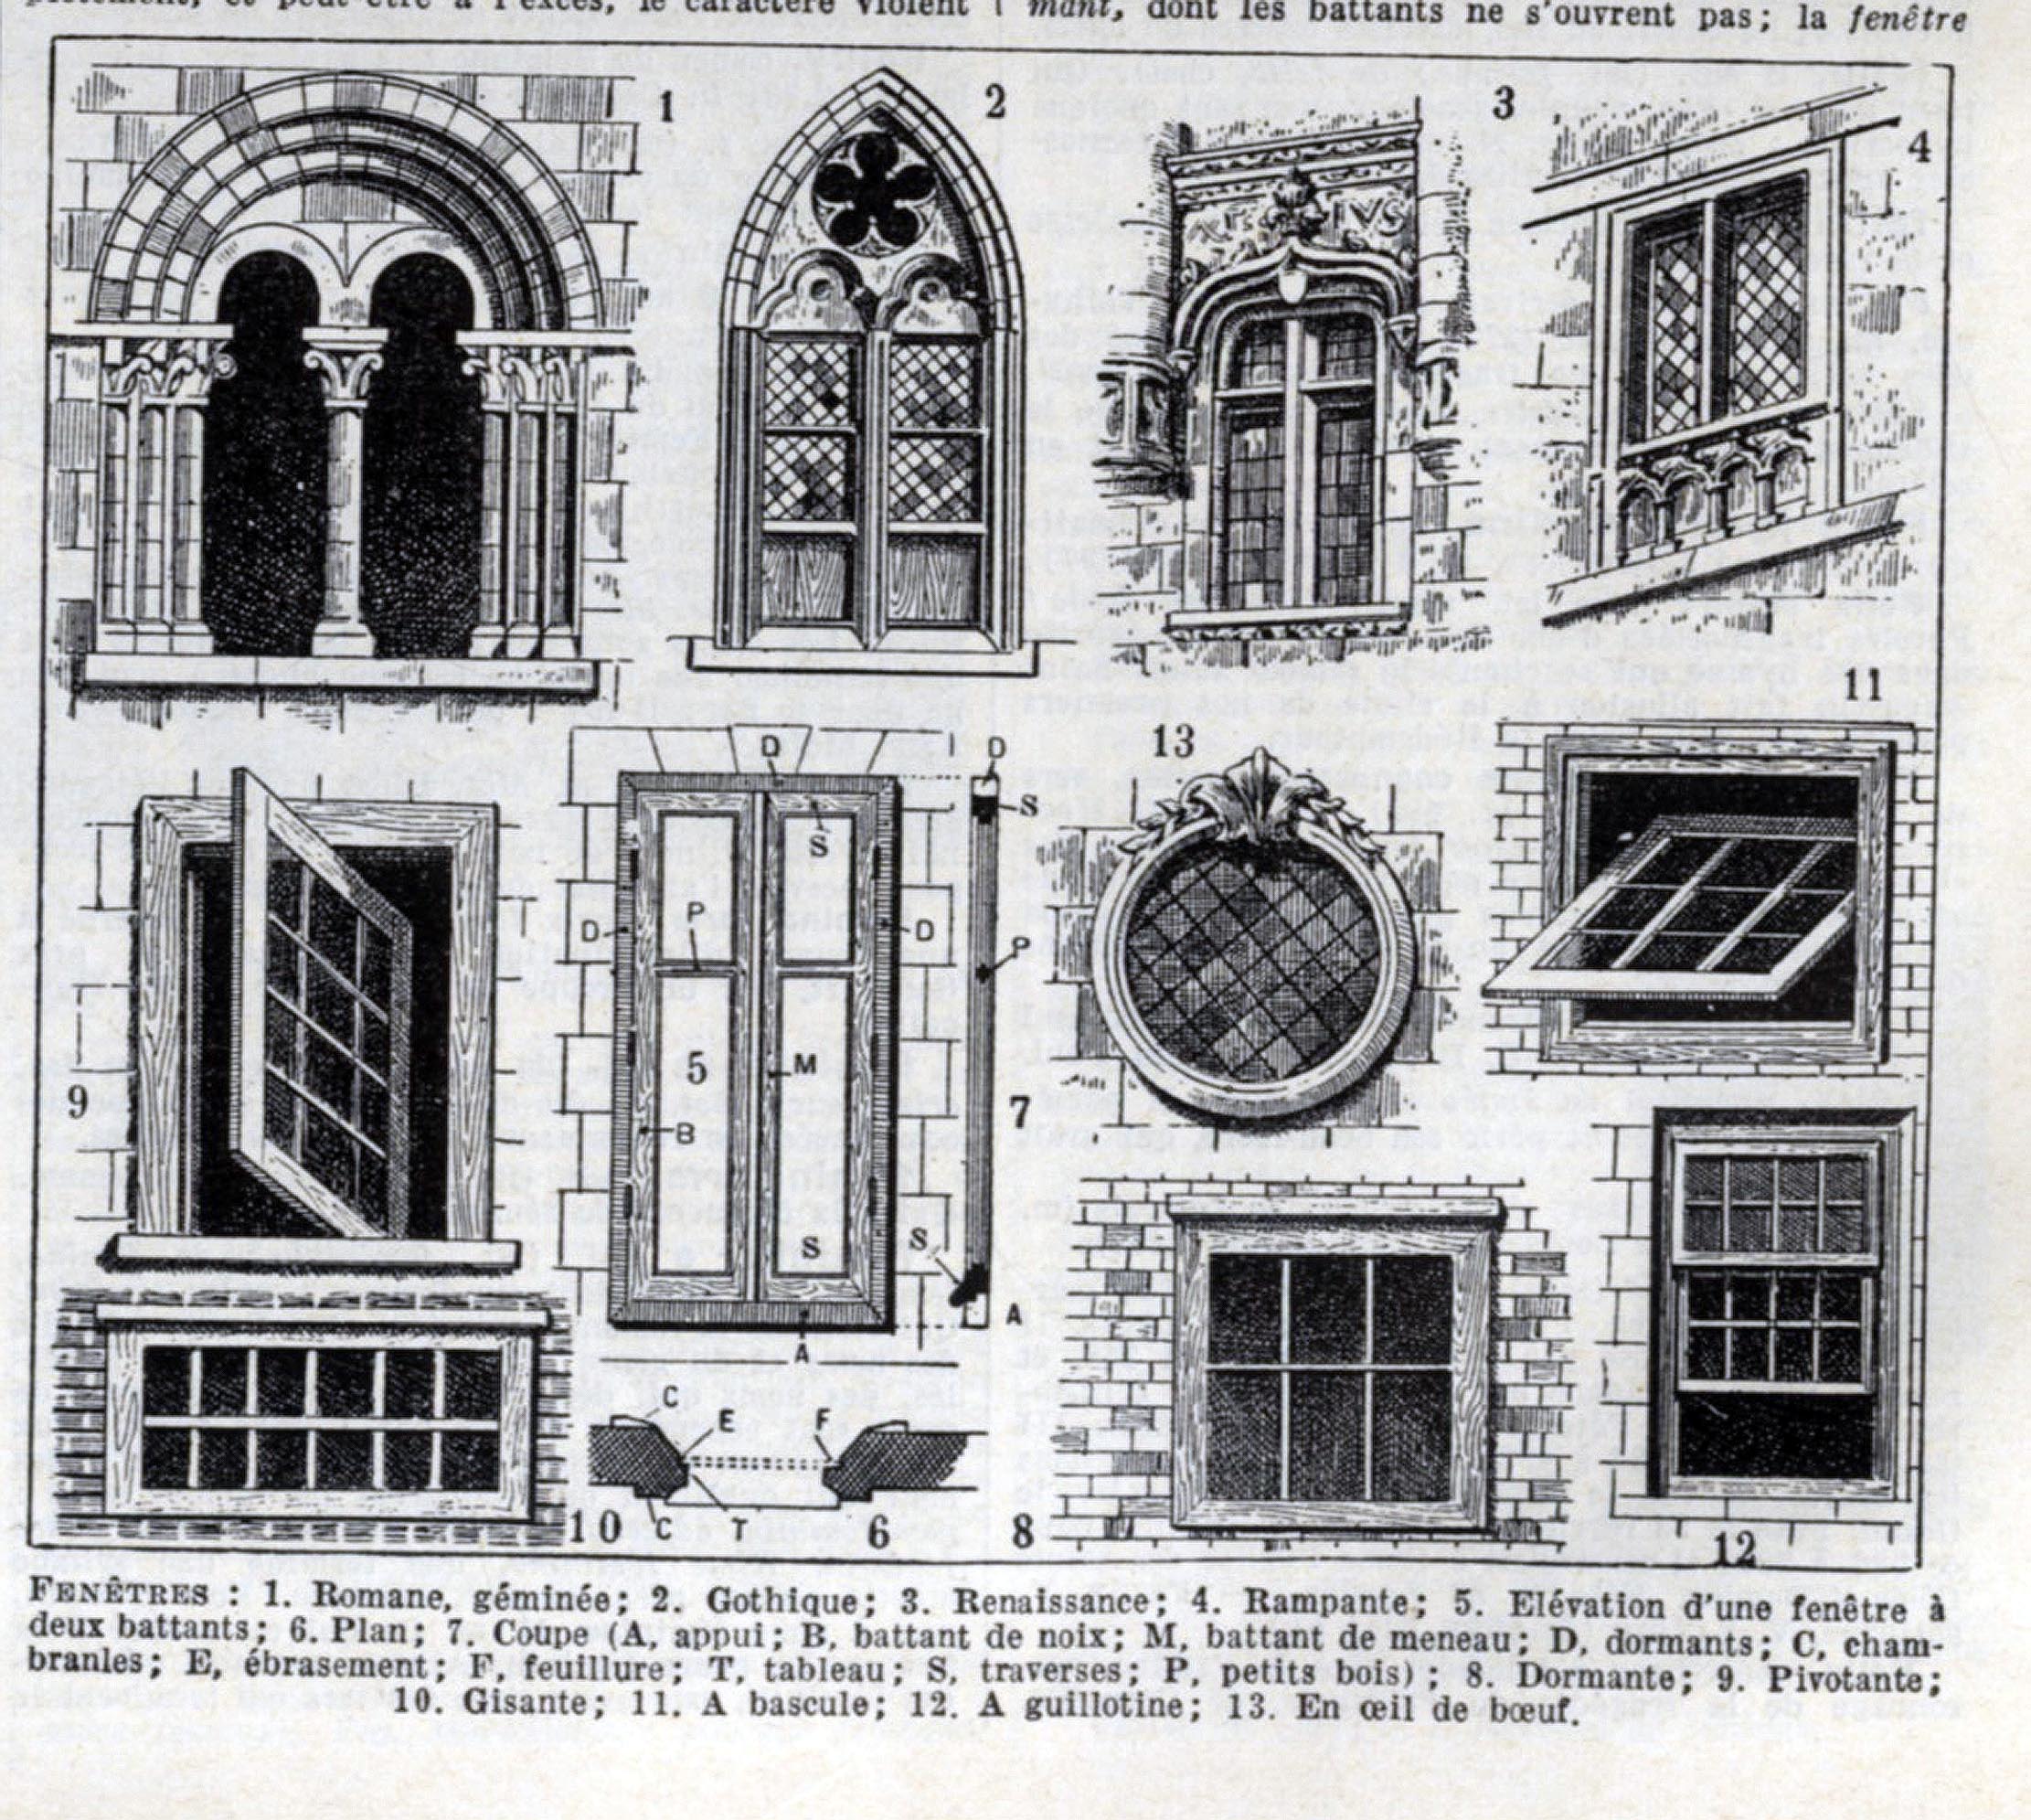 plètement, et peut-être à l'excès, le caractère violent
mant, dont les battants ne s'ouvrent pas; la fenêtre
1
2
3
4
IVS
11
13
D
D
S
S
P
D
D
P
5
M
9
B
7
S
S
A
A
C
E
F
10
C
T
6
8
12
FENÊTRES : 1. Romane, géminée; 2. Gothique; 3. Renaissance; 4. Rampante; 5. Elévation d'une fenêtre à
deux battants; 6. Plan; 7. Coupe (A, appui; B, battant de noix; M, battant de meneau; D, dormants; C, cham-
branles; E, ébrasement; F, feuillure; T, tableau; S, traverses; P, petits bois); 8. Dormante; 9. Pivotante;
10. Gisante; 11. A bascule; 12. A guillotine; 13. En œil de bœuf.